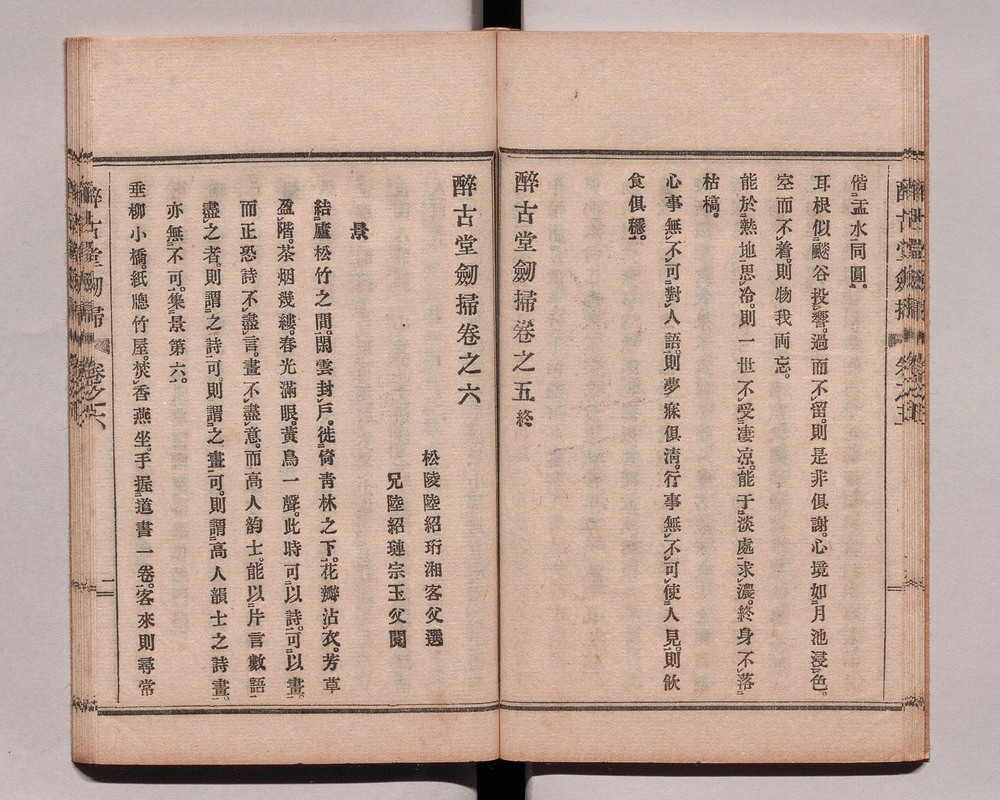 偕、盂水同圓。
耳根似颷谷投響。過而不留。則是非俱謝。心境如月池浸色。
空而不着。則物我両忘。
能於熱地思冷。則一世不受凄凉。能于淡處求濃。終身不落
枯槁。
心事無不可對人語。則夢寐俱清。行事無不可使人見。則飲
食俱穩。
醉古堂劒掃卷之五終
醉古堂劒掃卷之六
松陵陸紹珩湘客父選
兄陸紹璉宗玉父閱
景
結廬松竹之間。閒雲封戶。徙倚青林之下。花瓣沾衣。芳草
盈階。茶烟幾縷。春光滿眼。黃鳥一聲。此時可以詩。可以畫。
而正恐詩不盡言。畫不盡意。而高人韵士。能以片言數語
盡之者。則謂之詩可。則謂之畫可。則謂高人韻士之詩畫。
亦無不可。集景第六。
垂柳小橋。紙牕竹屋。焚香燕坐。手握道書一卷。客來則尋常
醉古堂劒掃
卷之六
二